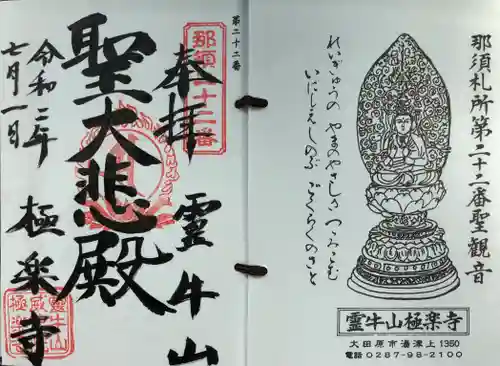 那須札所第二十二番聖観音
れいぎゅうの やまのやさしさ つつみこむ
いにしえしのぶ ごくらくのさと
霊牛山極楽寺
大田原市湯津上1350
電話0287-98-2100
第二十二番
奉拝
那須二十二番
霊牛山
聖大悲殿
令和二年
七月一日
極楽寺